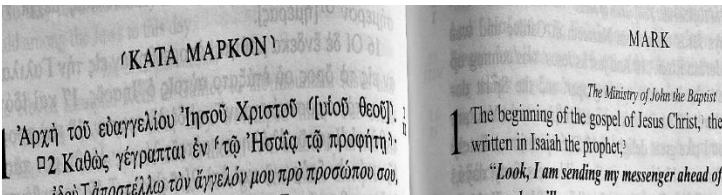 ⸂ΚΑΤΑ ΜΑΡΚΟΝ⸃
Ἀρχὴ τοῦ εὐαγγελίου Ἰησοῦ Χριστοῦ ⸂[υἱοῦ θεοῦ]⸃.
□2 Καθὼς γέγραπται ἐν ⸂τῷ Ἠσαΐᾳ τῷ προφήτῃ⸃·
ἰδοὺ ⸆ ἀποστέλλω τὸν ἄγγελόν μου πρὸ προσώπου σου,
MARK
The Ministry of John the Baptist
1 The beginning of the gospel of Jesus Christ, the
written in Isaiah the prophet,
"Look, I am sending my messenger ahead of